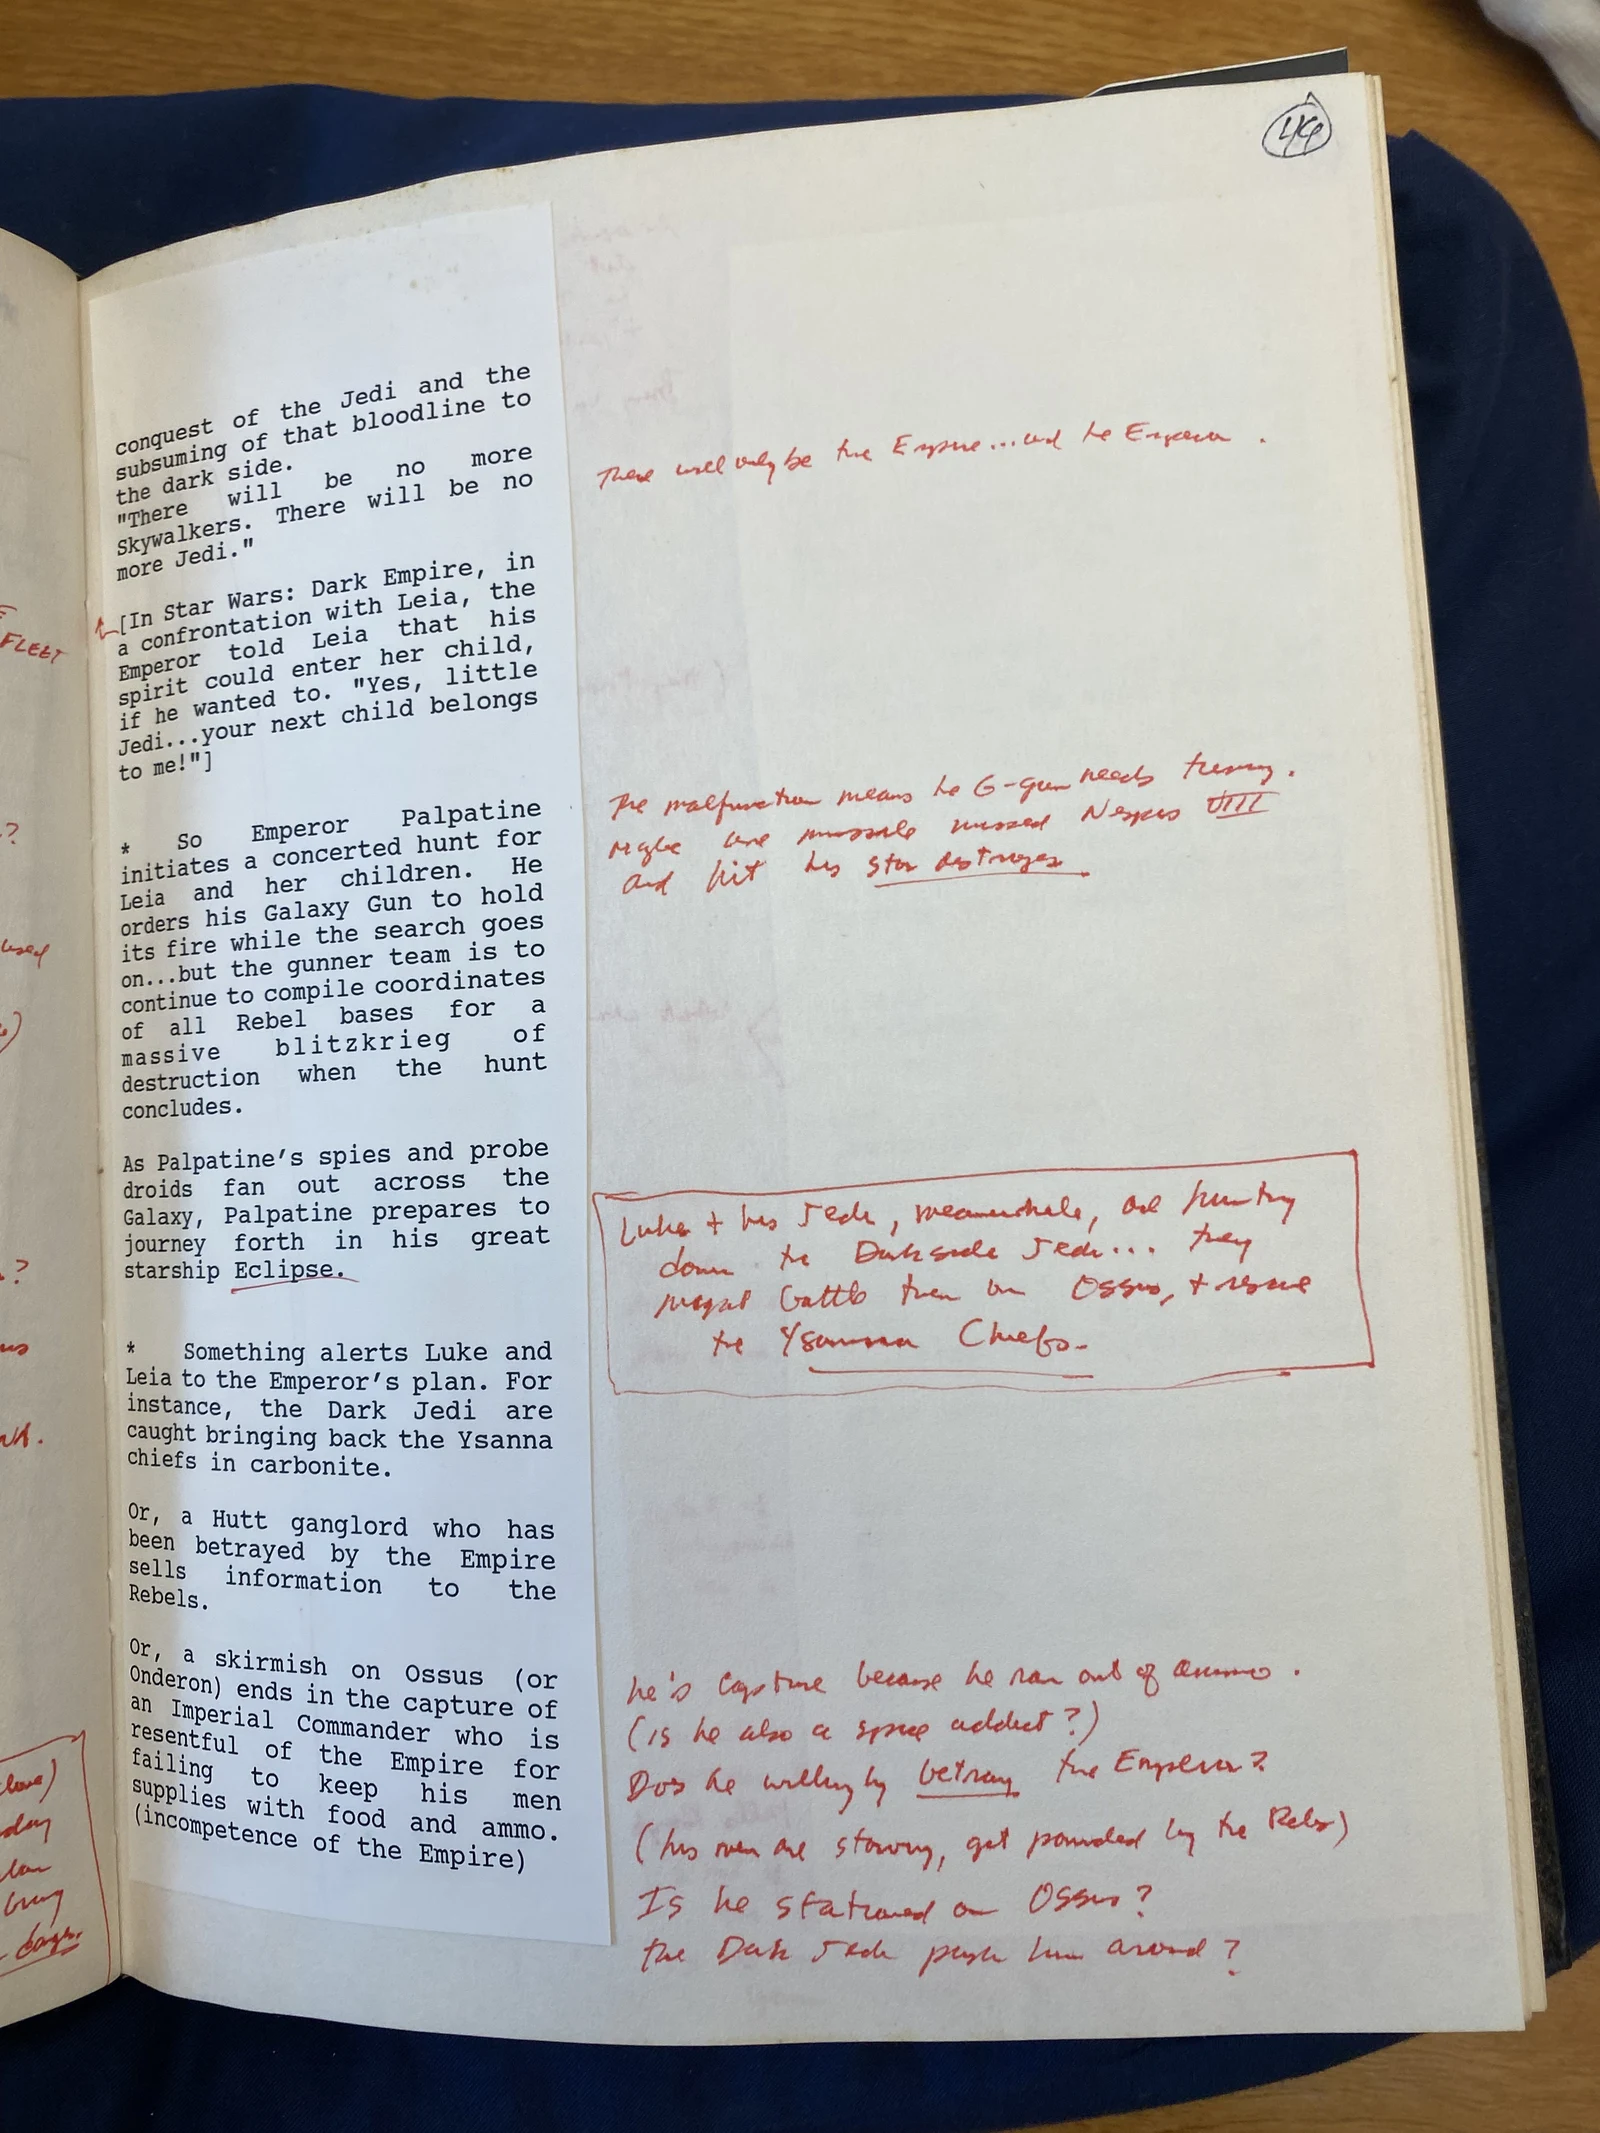 44
conquest of the Jedi and the
subsuming of that bloodline to
the dark side.
"There will be no more
Skywalkers. There will be no
more Jedi."
There will only be the Empire...and the Emperor.
[In Star Wars: Dark Empire, in
a confrontation with Leia, the
Emperor told Leia that his
spirit could enter her child,
if he wanted to. "Yes, little
Jedi...your next child belongs
to me!"]
* So Emperor Palpatine
initiates a concerted hunt for
Leia and her children. He
orders his Galaxy Gun to hold
its fire while the search goes
on...but the gunner team is to
continue to compile coordinates
of all Rebel bases for a
massive blitzkrieg of
destruction when the hunt
concludes.
The malfunction means the G-gun needs tuning.
maybe one missile missed Nespis VIII
and hit his star destroyer
As Palpatine's spies and probe
droids fan out across the
Galaxy, Palpatine prepares to
journey forth in his great
starship Eclipse.
Luke + his Jedi, meanwhile, are hunting
down the Darkside Jedi... they
might battle them on Ossus, + rescue
the Ysanna Chiefs.
* Something alerts Luke and
Leia to the Emperor's plan. For
instance, the Dark Jedi are
caught bringing back the Ysanna
chiefs in carbonite.
Or, a Hutt ganglord who has
been betrayed by the Empire
sells information to the
Rebels.
Or, a skirmish on Ossus (or
Onderon) ends in the capture of
an Imperial Commander who is
resentful of the Empire for
failing to keep his men
supplies with food and ammo.
(incompetence of the Empire)
he's capture because he ran out of ammo.
(is he also a spice addict?)
Does he willingly betray the Emperor?
(his men are starving, get pounded by the Rebs)
Is he stationed on Ossus?
the Dark Jedi push him around?
FLEET
used